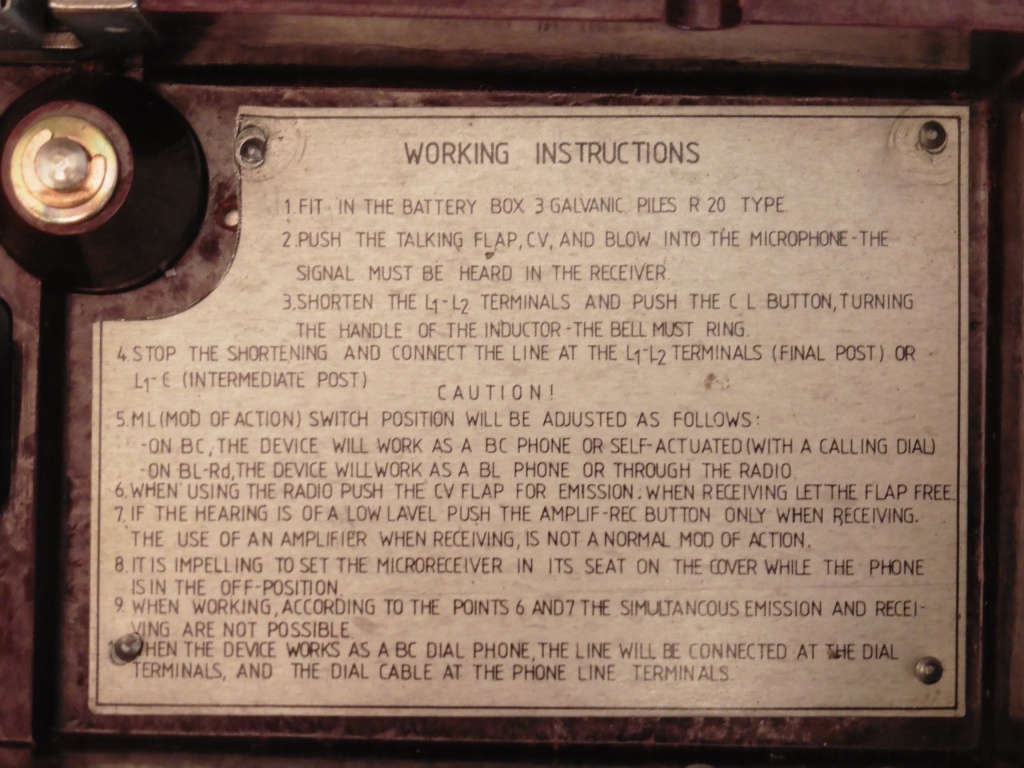 WORKING INSTRUCTIONS
1.FIT IN THE BATTERY BOX 3 GALVANIC PILES R 20 TYPE.
2.PUSH THE TALKING FLAP, CV, AND BLOW INTO THE MICROPHONE-THE
SIGNAL MUST BE HEARD IN THE RECEIVER.
3.SHORTEN THE L1-L2 TERMINALS AND PUSH THE C L BUTTON, TURNING
THE HANDLE OF THE INDUCTOR-THE BELL MUST RING.
4.STOP THE SHORTENING AND CONNECT THE LINE AT THE L1-L2 TERMINALS (FINAL POST) OR
L1-C (INTERMEDIATE POST)
CAUTION!
5.ML(MOD OF ACTION) SWITCH POSITION WILL BE ADJUSTED AS FOLLOWS:
-ON BC, THE DEVICE WILL WORK AS A BC PHONE OR SELF-ACTUATED(WITH A CALLING DIAL)
-ON BL-Rd, THE DEVICE WILL WORK AS A BL PHONE OR THROUGH THE RADIO
6.WHEN USING THE RADIO PUSH THE CV FLAP FOR EMISSION. WHEN RECEIVING LET THE FLAP FREE.
7.IF THE HEARING IS OF A LOW LAVEL PUSH THE AMPLIF-REC BUTTON ONLY WHEN RECEIVING.
THE USE OF AN AMPLIFIER WHEN RECEIVING, IS NOT A NORMAL MOD OF ACTION.
8.IT IS IMPELLING TO SET THE MICRORECEIVER IN ITS SEAT ON THE COVER WHILE THE PHONE
IS IN THE OFF-POSITION.
9 WHEN WORKING, ACCORDING TO THE POINTS 6 AND 7 THE SIMULTANCOUS EMISSION AND RECEI-
VING ARE NOT POSSIBLE.
WHEN THE DEVICE WORKS AS A BC DIAL PHONE, THE LINE WILL BE CONNECTED AT THE DIAL
TERMINALS, AND THE DIAL CABLE AT THE PHONE LINE TERMINALS.